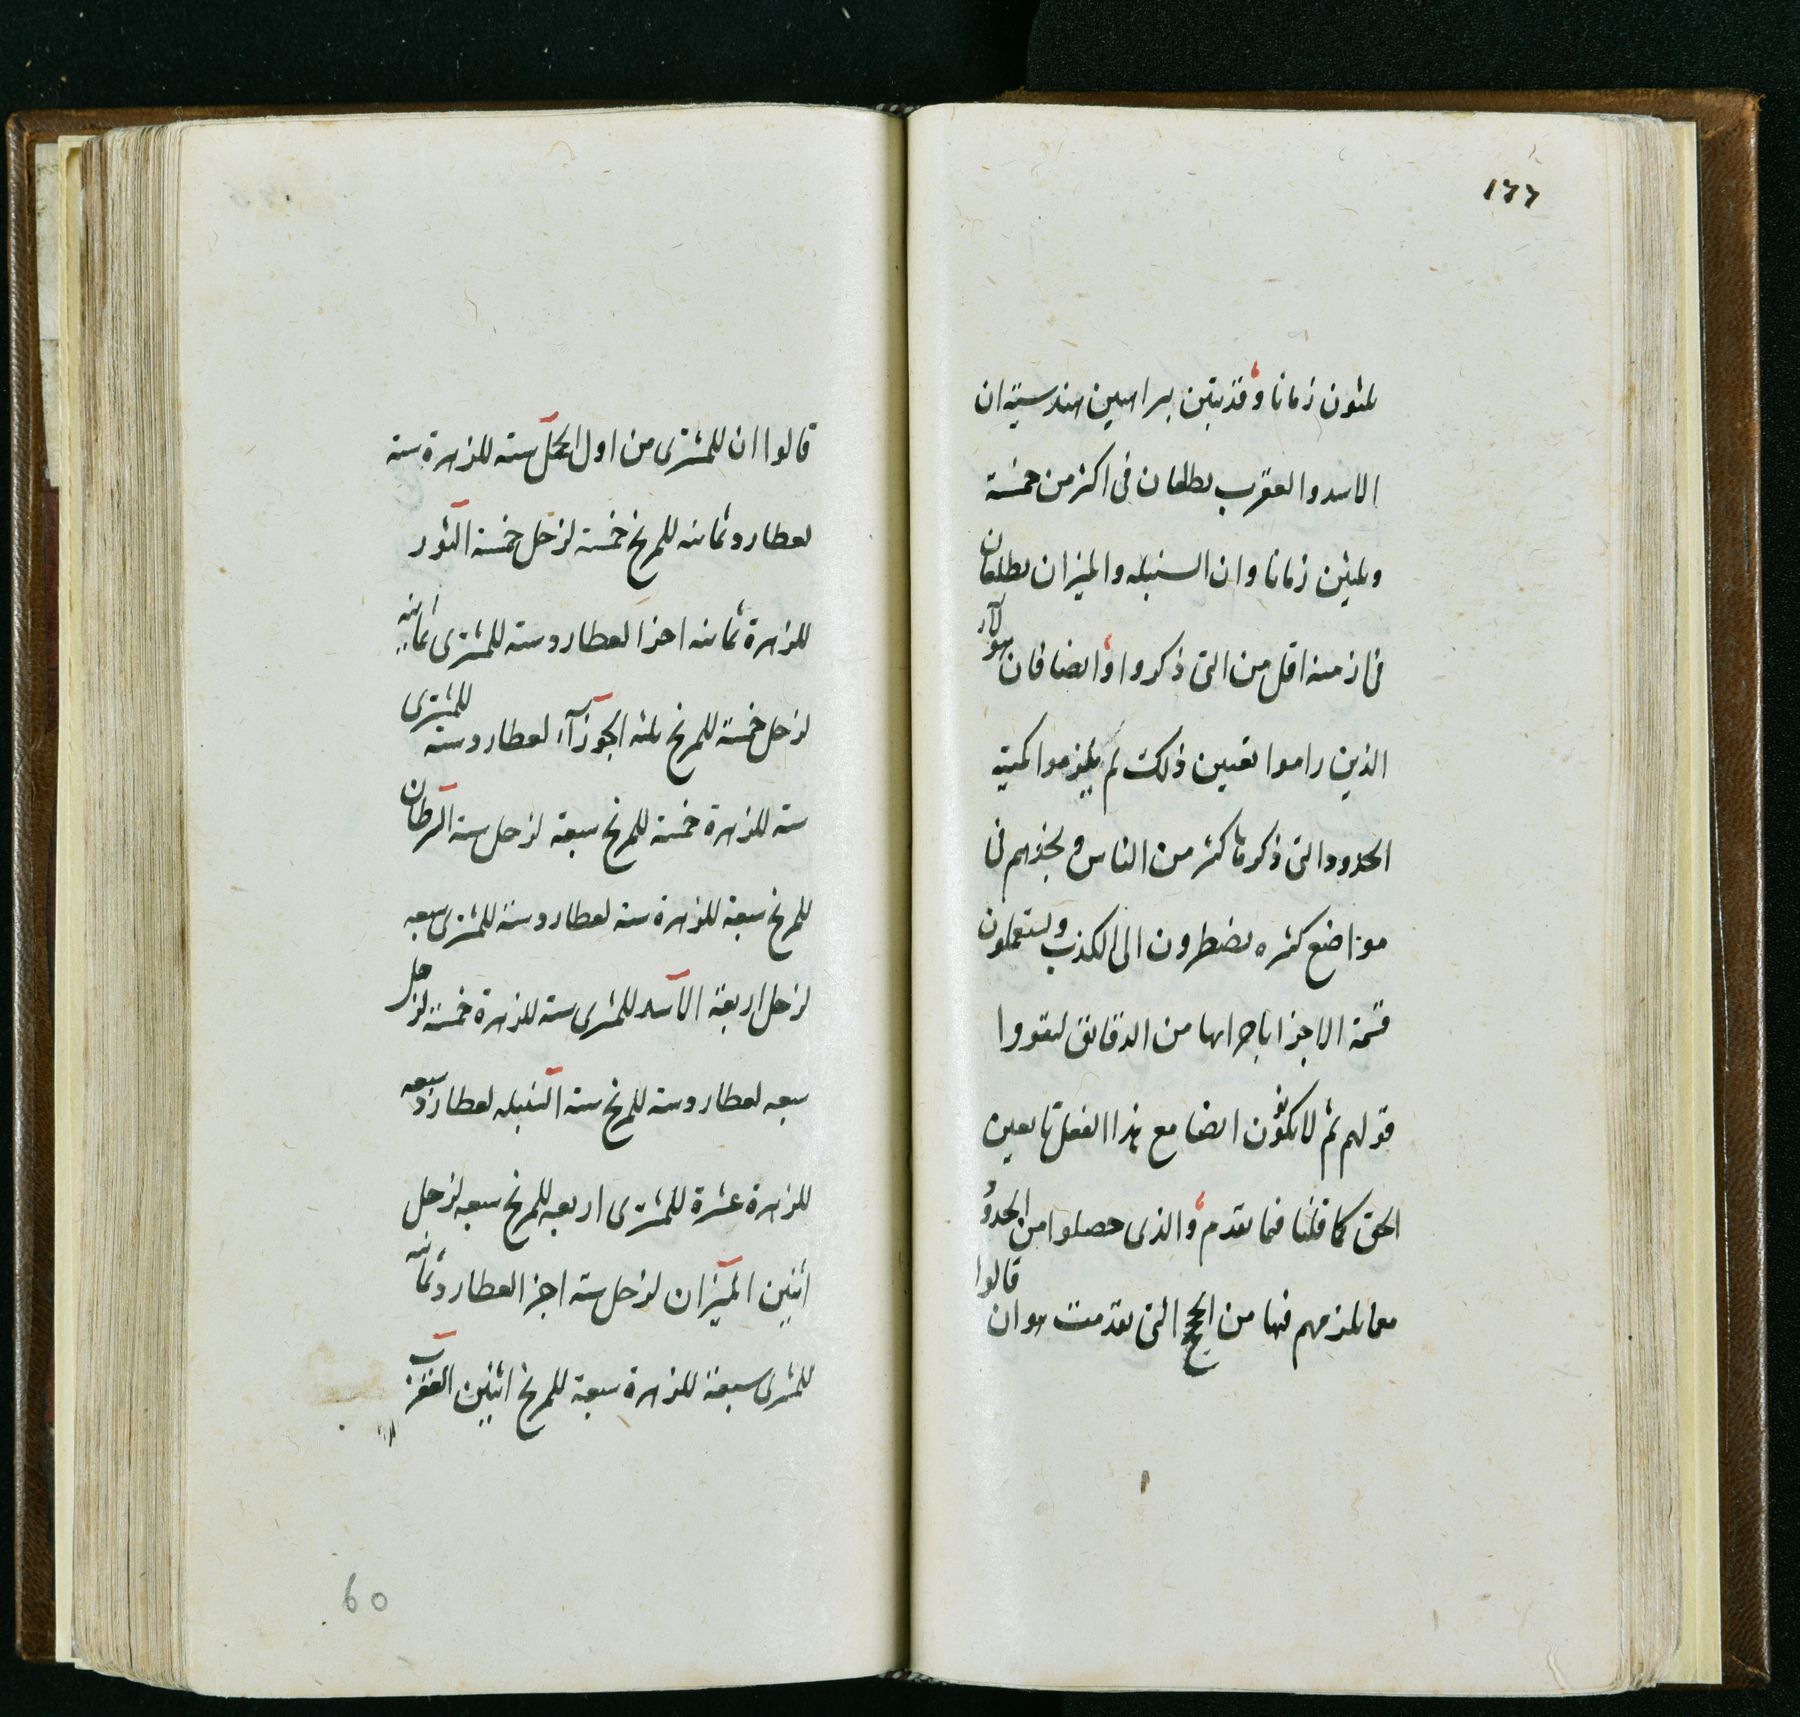 ١٢٢
ثلثون زمانا وقد بتبين ببراهين هندسية ان
الاسد والعقرب يطلعان فى اكثر من خمسة
وثلثين زمانا وان السنبله والميزان يطلعان
فى ازمنه اقل من التى ذكروا وايضا فان هولآء
الذين راموا تعيين ذلك لم يلزموا كمية
الحدود التى ذكرها كثر من الناس ونجدهم فى
مواضع كثيره يضطرون الى الكذب ويستعملون
قسمة الاجزا باجزايها من الدقايق ليقووا
قولهم ثم لا يكونون ايضا مع هذا الفعل تابعين
الحق كما قلنا فيما تقدم والذى حصلوا من الحدود
مما يلزمهم فيها من الحجج التى تقدمت هو ان قالوا
قالوا ان للمشترى من اول الحمل سته للزهرة سته
لعطارد ثمانيه للمريخ خمسة لزحل خمسة الثور
للزهرة ثمانيه اجزا لعطارد سته للمشترى ثمانيه
لزحل خمسة للمريخ ثلثه الجوزآء لعطارد سته للمشترى
سته للزهرة خمسة للمريخ سبعة لزحل سته السرطان
للمريخ سبعة للزهرة سته لعطارد ستة للمشترى سبعه
لزحل اربعة الاسد للمشترى سته للزهرة خمسة لزحل
سبعه لعطارد سته للمريخ سته السنبله لعطارد سبعه
للزهرة عشرة للمشترى اربعه للمريخ سبعه لزحل
اثنين الميزان لزحل سته اجزا لعطارد ثمانيه
للمشترى سبعة للزهرة سبعة للمريخ اثنين العقرب
60